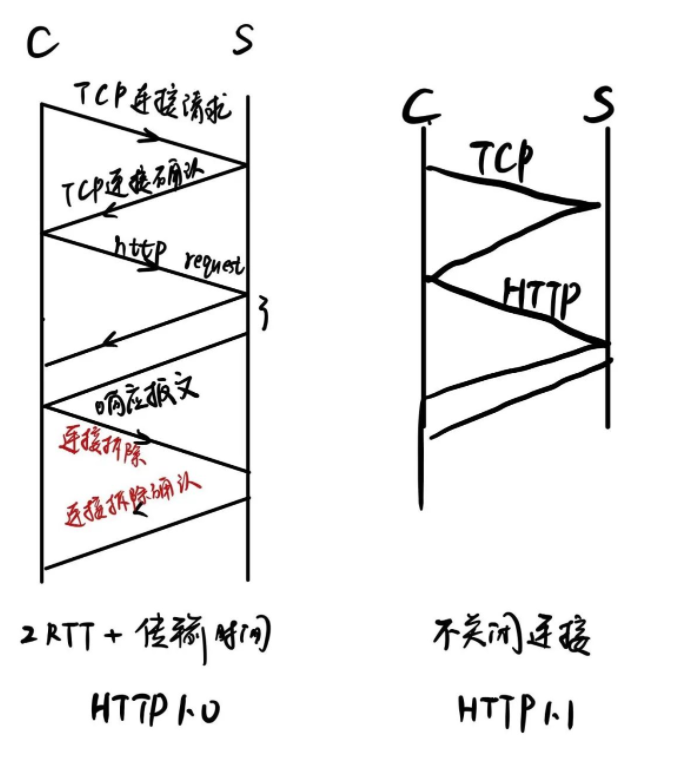 C S
TCP连接请求
TCP连接确认
http request
响应报文
连接拆除
连接拆除确认
2RTT + 传输时间
HTTP1.0
C S
TCP
HTTP
不关闭连接
HTTP1.1